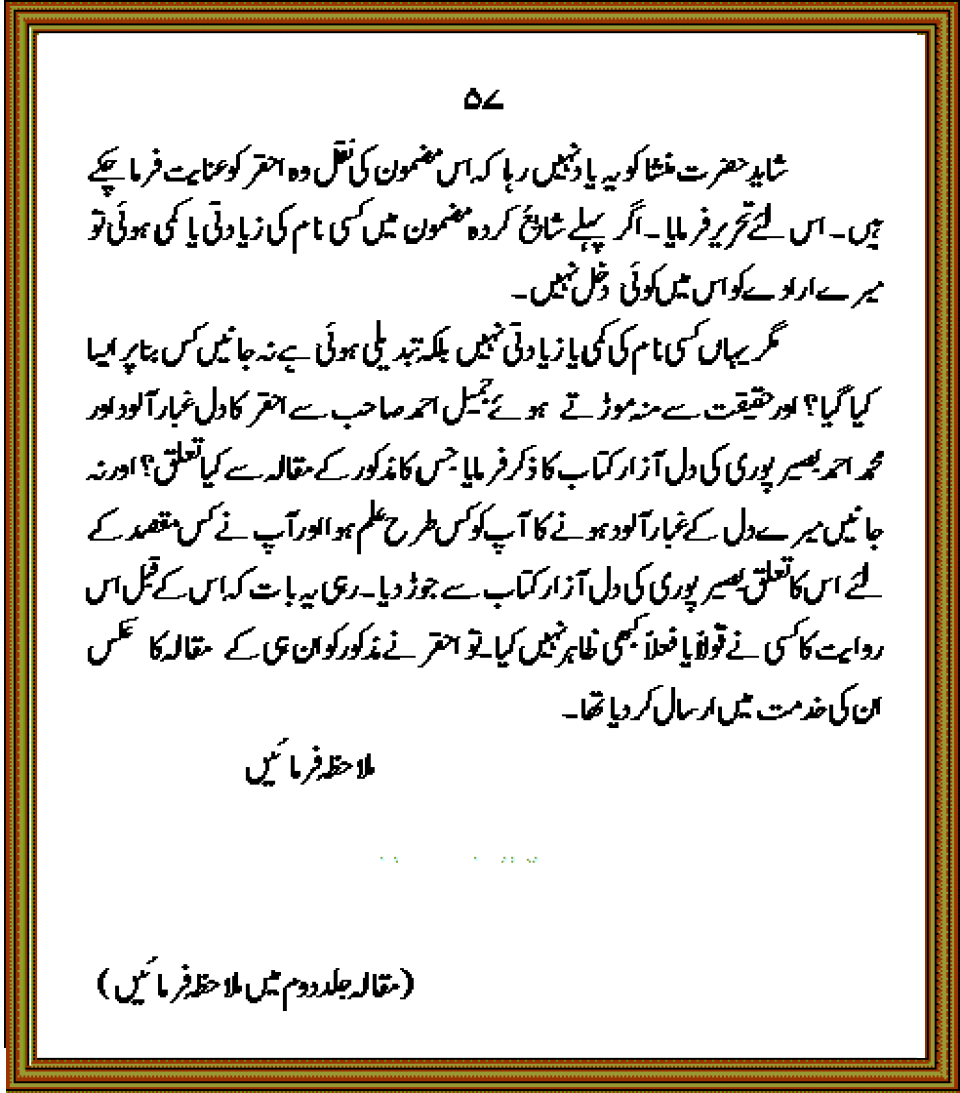 ۵۷
شاید حضرت منشا کو یہ یاد نہیں رہا کہ اس مضمون کی نقل وہ احقر کو عنایت فرما چکے
ہیں۔ اس لئے تحریر فرمایا۔ اگر پہلے شایع کردہ مضمون میں کسی نام کی زیادتی یا کمی ہوئی تو
میرے ارادے کو اس میں کوئی دخل نہیں۔
مگر یہاں کسی نام کی کمی یا زیادتی نہیں بلکہ تبدیلی ہوئی ہے نہ جانیں کس بنا پر ایسا
کیا گیا؟ اور حقیقت سے منہ موڑتے ہوئے جمیل احمد صاحب سے احقر کا دل غبار آلود اور
محمد احمد بصیر پوری کی دل آزار کتاب کا ذکر فرمایا جس کا مذکور کے مقالہ سے کیا تعلق؟ اور نہ
جانیں میرے دل کے غبار آلود ہونے کا آپ کو کس طرح علم ہوا اور آپ نے کس مقصد کے
لئے اس کا تعلق بصیر پوری کی دل آزار کتاب سے جوڑ دیا۔ رہی یہ بات کہ اس کے قبل اس
روایت کا کسی نے قولاً یا فعلاً کبھی ظاہر نہیں کیا۔ تو احقر نے مذکور کو ان ہی کے مقالہ کا عکس
ان کی خدمت میں ارسال کر دیا تھا۔
ملاحظہ فرمائیں
(مقالہ جلد دوم میں ملاحظہ فرمائیں)